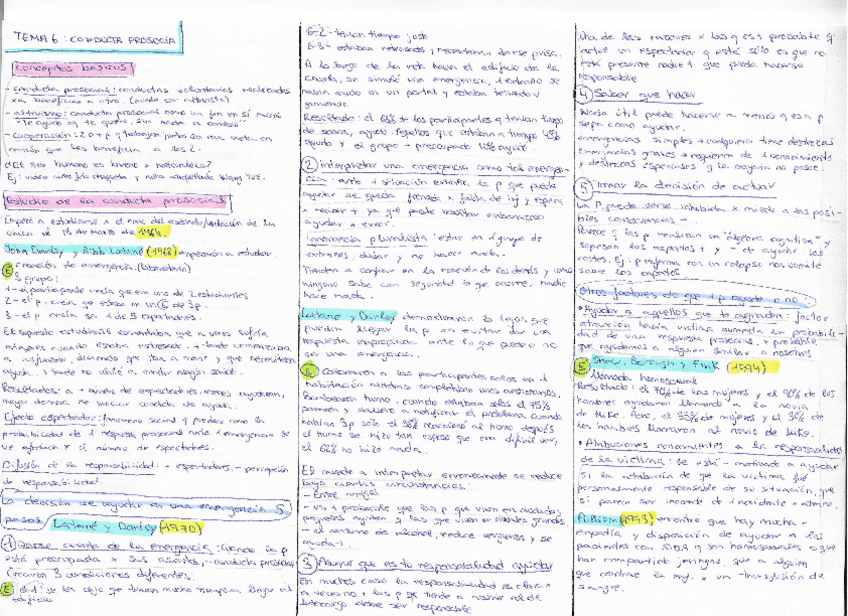 TEMA 6: CONDUCTA PROSOCIA
Conceptos básicos
- conducta prosocial: conductas voluntarias realizadas
xa beneficiar a otro. (puede ser altruista)
- altruismo: conducta prosocial como un fin en sí mismo
- cooperación: 2 o + p q trabajan juntas xa una meta
común que los beneficia a los 2.
¿El ser humano es bueno x naturaleza?
Estudio de la conducta prosocial
Empezó a estudiarse x el caso del asesinato/violación de una
chica el 13 de marzo de 1964.
John Darley y Bibb Latané (1968) empezaron a estudiar.
E reacción de emergencia. (laboratorio)
3 grupo:
1 - el participante creía que era uno de 2 estudiantes
2 - el p. creía q estaba en un G de 3 p.
3 - el p creía ser 1 de 5 espectadores.
El supuesto estudiante comentaba que a veces sufría
ataques cuando estaba estresado. + tarde comenzaba
a asfixiarse, diciendo que iba a morir y que necesitaba
ayuda. + tarde no volvió a emitir ningún sonido.
Resultados: a + número de espectadores, menos ayudaron,
mayor demora en iniciar conducta de ayuda.
Efecto espectador: fenómeno social q predice como la
probabilidad de 1 respta prosocial ante 1 emergencia se
ve afectada x el número de espectadores.
Difusión de la responsabilidad: + espectadores - percepción
de responsabilidad.
La decisión de ayudar en una emergencia 5
pasos, Latané y Darley (1970)
1 Darse cuenta de la emergencia: cuando la p
está preocupada x sus asuntos, - conducta prosocial
Crearon 3 condiciones diferentes.
E 6-1 se les dijo que tenían mucho tiempo xa llegar al
edificio
6-2 - tenían tiempo justo
6-3 - estaban retrasados y necesitaban darse prisa.
A lo largo de la ruta hacia el edificio de la
charla, se simuló una emergencia, 1 extraño se
hallaba en un portal y estaba tosiendo y
gimiendo
Resultado: el 63% de los participantes q tenían tiempo
de sobra, ayudó. Aquellos que estaban a tiempo 45%
ayudó y el grupo + preocupado 10% ayudó
2 Interpretar una emergencia como tal emergen-
cia: ante 1 situación extraña la p que puede
ayudar se queda frenada x falta de inf y espera
a recibir + ya que puede resultar embarazoso
ayudar x error.
Ignorancia pluralista: estar en 1 grupo de
extraños, dudar y no hacer nada.
Tienden a confiar en la reacción de los demás y como
ninguno sabe con seguridad lo que ocurre, nadie
hace nada.
Latané y Darley demostraron lo lejos que
pueden llegar las p xa evitar dar una
respuesta inapropiada ante lo que puede no
ser una emergencia.
E Colocaron a los participantes solos en 1
habitación mientras completaban unos cuestionarios.
Bombearon humo. cuando estaban solos el 75%
pararon y salieron a notificar el problema. Cuando
habían 3 p sólo el 38% reaccionó al humo después
el humo se hizo tan espeso que era difícil ver,
el 62% no hizo nada.
El miedo a interpretar erróneamente se reduce
bajo ciertas circunstancias:
- Entre amigos
- es + probable que las p que viven en ciudades
pequeñas ayuden q las que viven en ciudades grandes.
- el consumo de alcohol, reduce vergüenza y se
ayuda +.
3 Asumir que es tu responsabilidad ayudar
En muchos casos la responsabilidad es clara
a veces no x las p que tiende a asumir rol de
liderazgo debe ser responsable
Una de las razones x las q es + probable q
actúe un espectador q está sólo es que no
está presente nadie + que pueda hacerse
responsable
4 Saber que hacer
Nada útil puede hacerse a menos q esa p
sepa como ayudar.
emergencias simples → cualquiera tiene destrezas
emergencias graves → requieren de 1 conocimiento
y destrezas especiales q la mayoría no posee
5 Tomar la decisión de actuar
La P. puede verse inhibida x miedo a las posi-
bles consecuencias -
Parece q las p realizan un "álgebra cognitiva" y
sopesan los aspectos + y - de ayudar y los
costes. Ej: p enferma con un colapso nos vomite
Otros factores de que 1 p ayude o no
• Ayudar a aquellos que te agradan: factor
atracción hacia víctima aumenta la probabili-
dad de una respuesta prosocial. + probable
que ayudemos a alguien similar a nosotros
E Shaw, Borough y Fink (1994)
llamada homosexual
Resultado: el 70% de las mujeres y el 90% de los
hombres ayudaron llamando a la novia
de Mike. Pero, el 35% de mujeres y el 30% de
los hombres llamaron al novio de Mike.
• Atribuciones concernientes a la responsabilidad
de la víctima: se está - motivado a ayudar
si la atribución de que la víctima fue
personalmente responsable de su situación, que
si parece ser inocente de 1 incidente externo.
(1993) encontró que hay mucha -
empatía y disposición de ayudar a los
pacientes con sida q son homosexuales o que
han compartido jeringas, que a alguien
que contrae la enf. x una transfusión de
sangre.